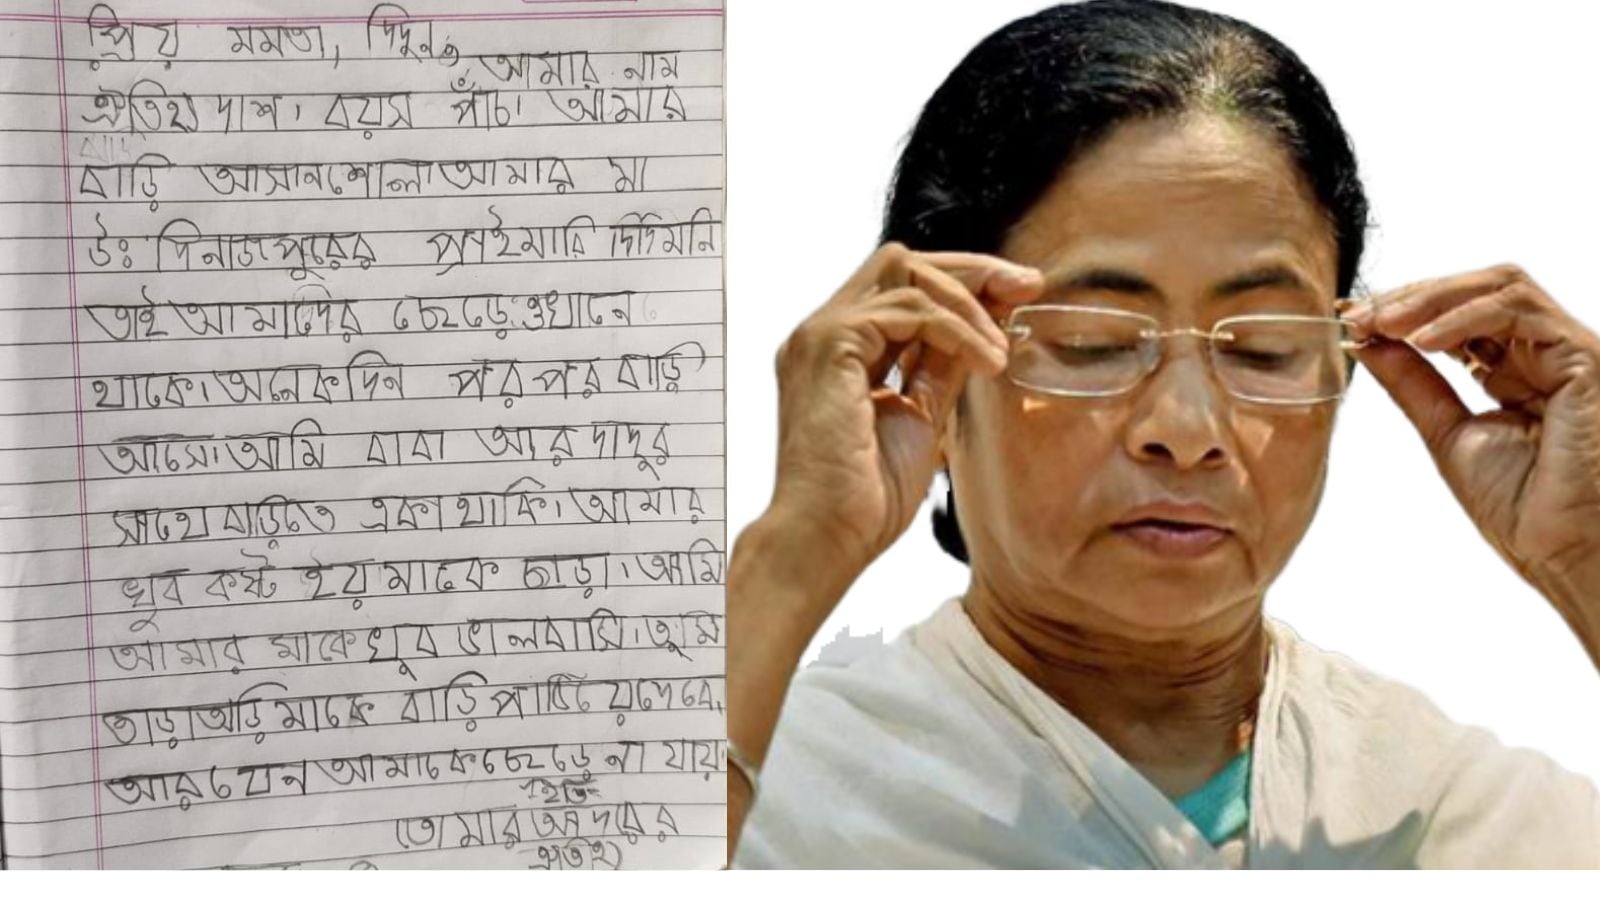 প্রিয় মমতা, দিদুন,
আমার নাম
ঐতিহ্য দাশ। বয়স পাঁচ। আমার
বাড়ি আসানশোল। আমার মা
উঃ দিনাজপুরের প্রাইমারি দিদিমনি
তাই আমাদের ছেড়ে ওখানে
থাকে। অনেকদিন পর পর বাড়ি
আসে। আমি বাবা আর দাদুর
সাথে বাড়িতে একা থাকি। আমার
খুব কষ্ট হয় মাকে ছাড়া। আমি
আমার মাকে খুব ভালবাসি। তুমি
তাড়াতাড়ি মাকে বাড়ি পাঠিয়ে দেবে,
আর যেন আমাকে ছেড়ে না যায়
ইতি
তোমার আদরের
ঐতিহ্য